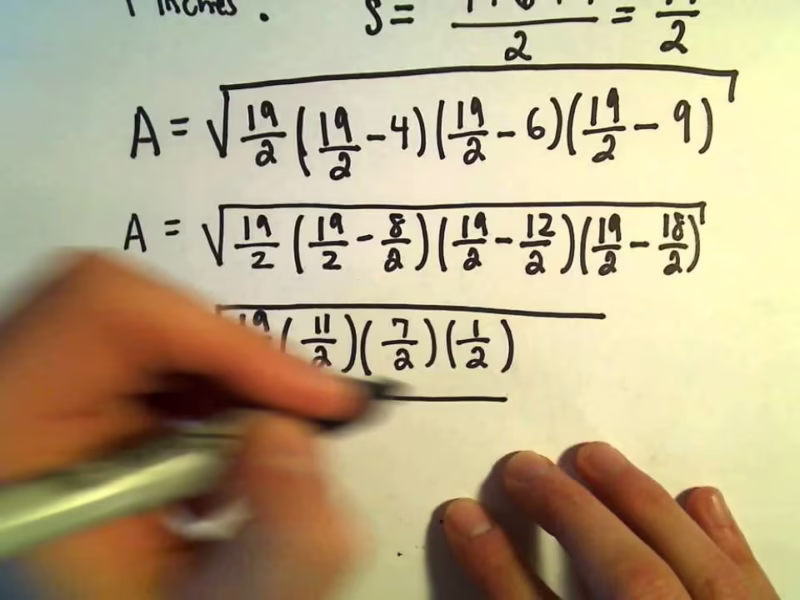 inches. S = 2 = 19/2
A = √(19/2 (19/2 − 4)(19/2 − 6)(19/2 − 9))
A = √(19/2 (19/2 − 8/2)(19/2 − 12/2)(19/2 − 18/2))
√(19/2 (11/2)(7/2)(1/2))